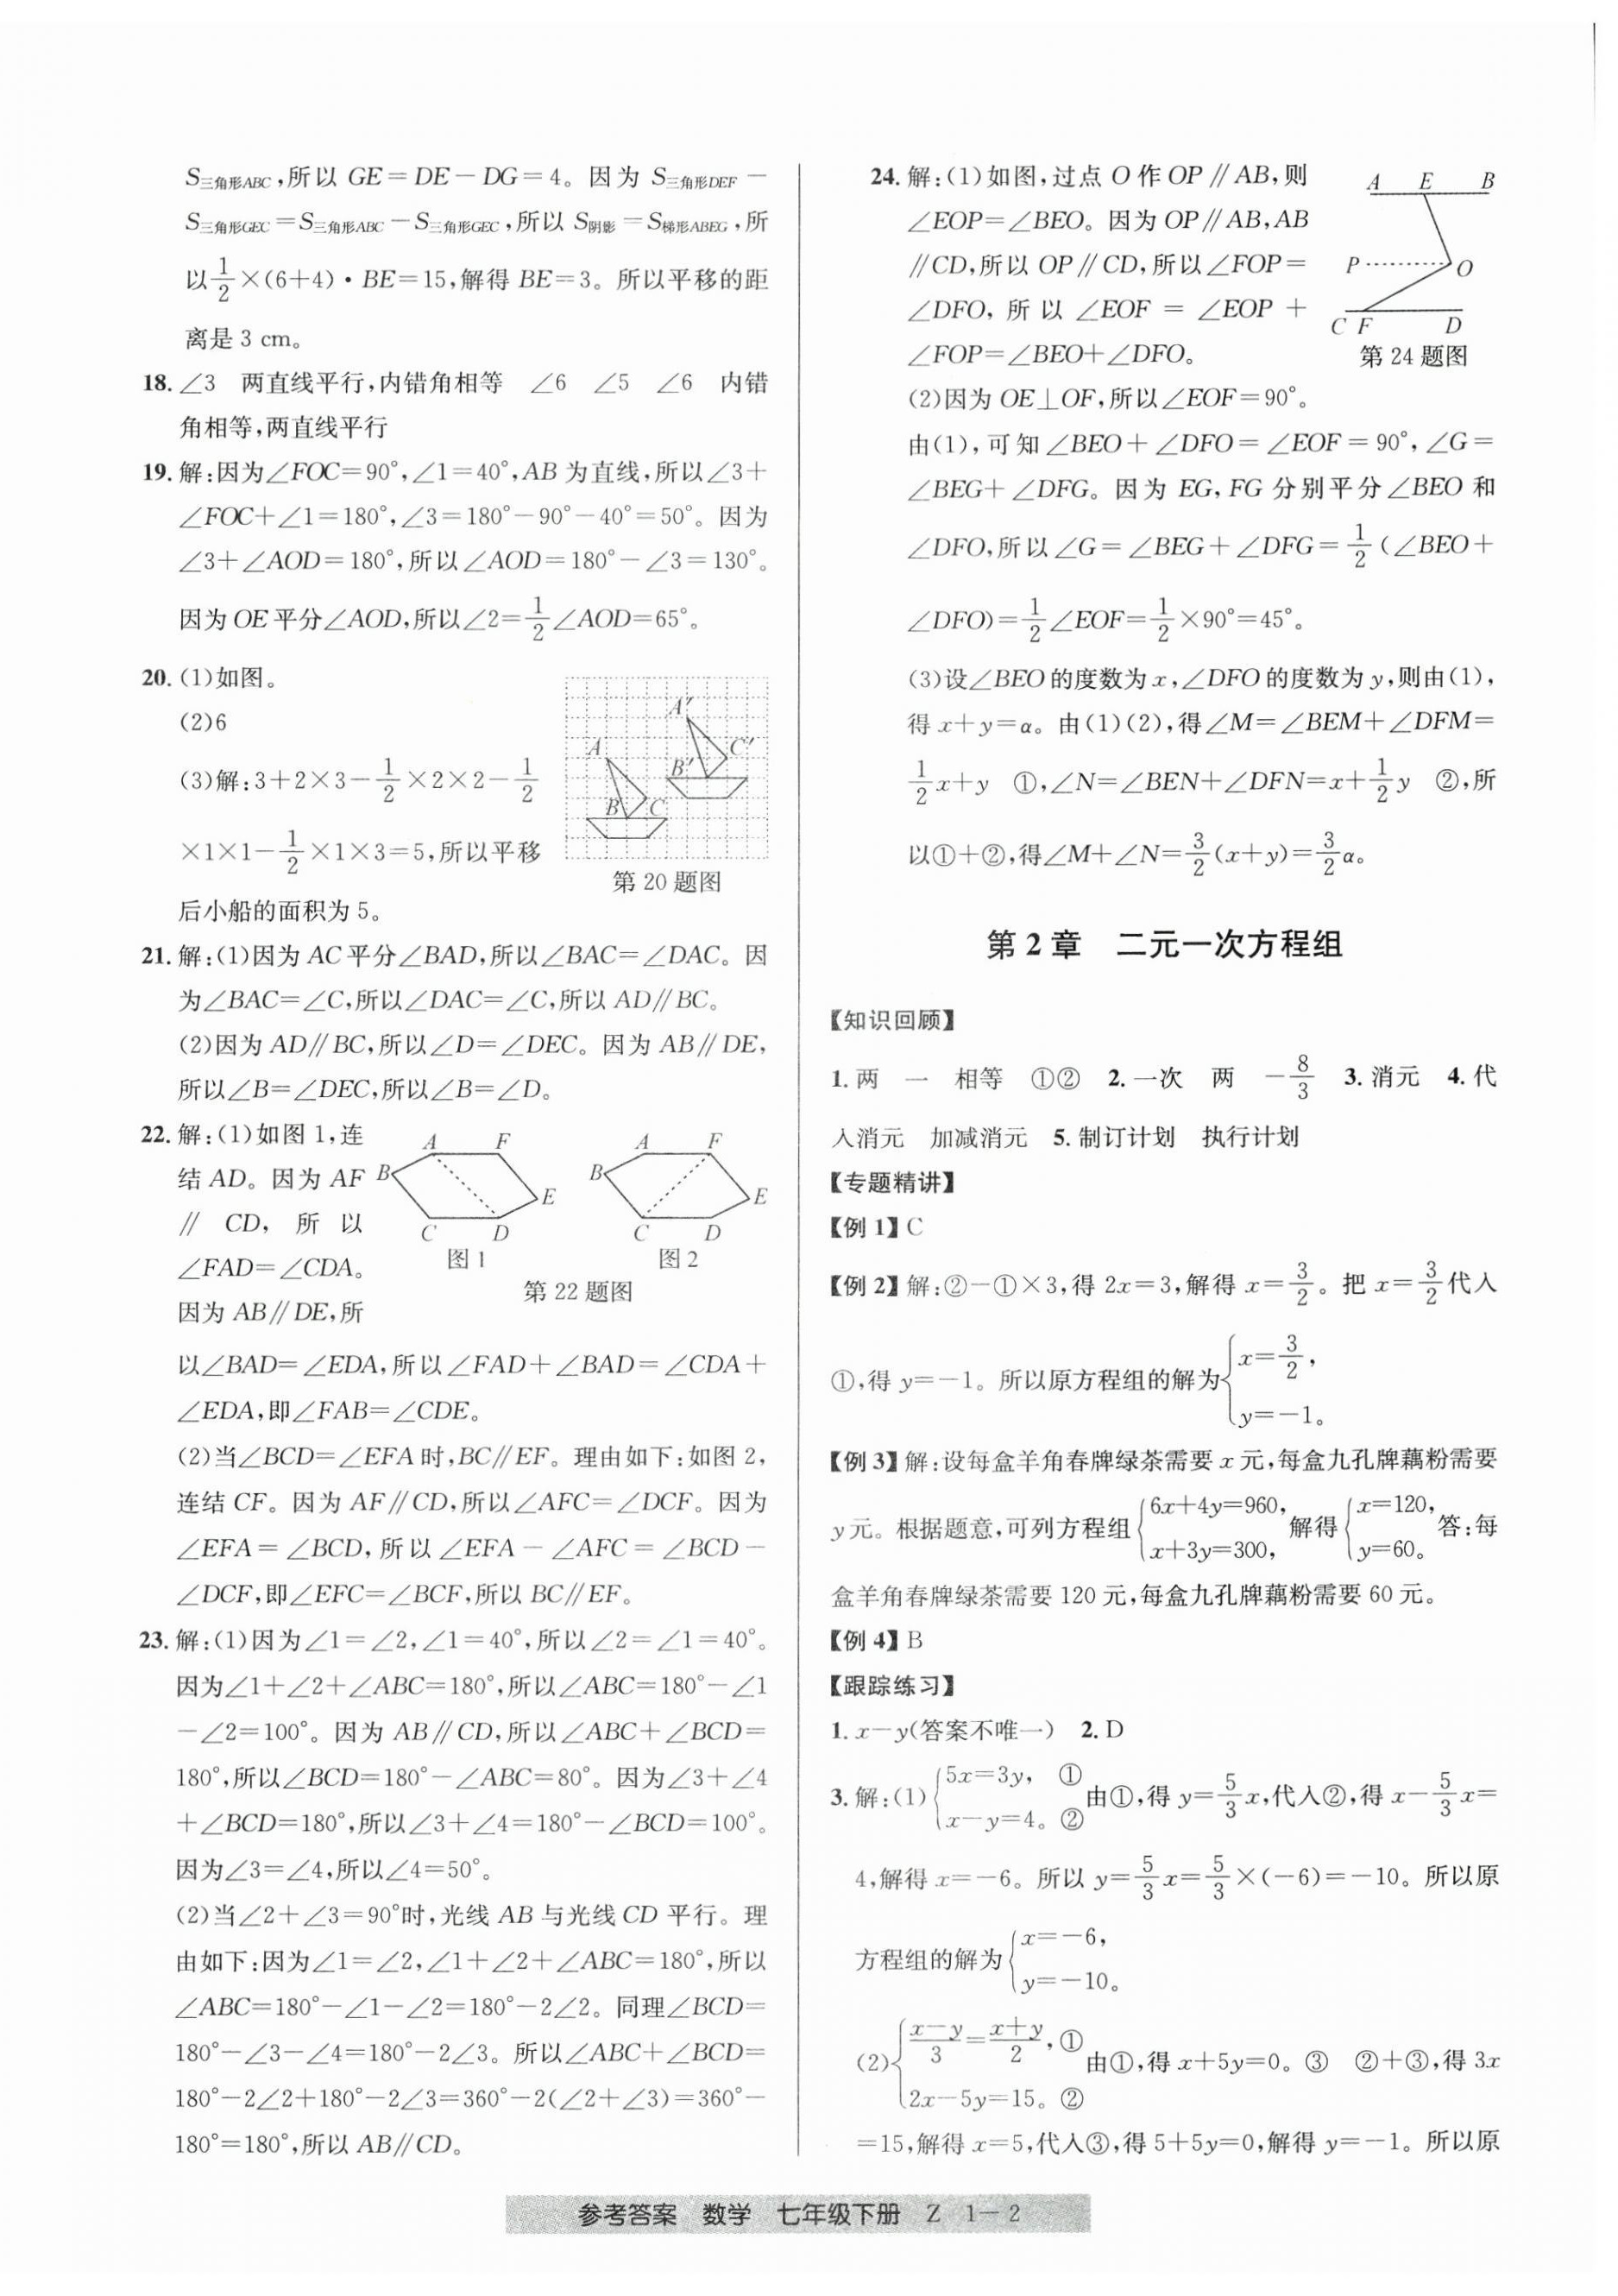 S三角形ABC,所以 GE=DE-DG=4。因为 S三角形DEF-
S三角形GEC=S三角形ABC-S三角形GEC,所以 S阴影=S梯形ABEG,所
以1/2×(6+4)·BE=15,解得 BE=3。所以平移的距
离是 3 cm。
18. ∠3 两直线平行,内错角相等 ∠6 ∠5 ∠6 内错
角相等,两直线平行
19. 解:因为∠FOC=90°,∠1=40°,AB 为直线,所以∠3+
∠FOC+∠1=180°,∠3=180°-90°-40°=50°。因为
∠3+∠AOD=180°,所以∠AOD=180°-∠3=130°。
因为 OE 平分∠AOD,所以∠2=1/2∠AOD=65°。
20. (1)如图。
(2)6
(3)解:3+2×3-1/2×2×2-1/2
×1×1-1/2×1×3=5,所以平移
后小船的面积为 5。
A′
A C′
B′
B C
第 20 题图
21. 解:(1)因为 AC 平分∠BAD,所以∠BAC=∠DAC。因
为∠BAC=∠C,所以∠DAC=∠C,所以 AD∥BC。
(2)因为 AD∥BC,所以∠D=∠DEC。因为 AB∥DE,
所以∠B=∠DEC,所以∠B=∠D。
22. 解:(1)如图 1,连
结 AD。因为 AF
∥ CD,所以
∠FAD=∠CDA。
因为 AB∥DE,所
A F A F
B E B E
C D C D
图 1 图 2
第 22 题图
以∠BAD=∠EDA,所以∠FAD+∠BAD=∠CDA+
∠EDA,即∠FAB=∠CDE。
(2)当∠BCD=∠EFA 时,BC∥EF。理由如下:如图 2,
连结 CF。因为 AF∥CD,所以∠AFC=∠DCF。因为
∠EFA=∠BCD,所以∠EFA-∠AFC=∠BCD-
∠DCF,即∠EFC=∠BCF,所以 BC∥EF。
23. 解:(1)因为∠1=∠2,∠1=40°,所以∠2=∠1=40°。
因为∠1+∠2+∠ABC=180°,所以∠ABC=180°-∠1
-∠2=100°。因为 AB∥CD,所以∠ABC+∠BCD=
180°,所以∠BCD=180°-∠ABC=80°。因为∠3+∠4
+∠BCD=180°,所以∠3+∠4=180°-∠BCD=100°。
因为∠3=∠4,所以∠4=50°。
(2)当∠2+∠3=90°时,光线 AB 与光线 CD 平行。理
由如下:因为∠1=∠2,∠1+∠2+∠ABC=180°,所以
∠ABC=180°-∠1-∠2=180°-2∠2。同理∠BCD=
180°-∠3-∠4=180°-2∠3。所以∠ABC+∠BCD=
180°-2∠2+180°-2∠3=360°-2(∠2+∠3)=360°-
180°=180°,所以 AB∥CD。
24. 解:(1)如图,过点 O 作 OP∥AB,则
∠EOP=∠BEO。因为 OP∥AB,AB
∥CD,所以 OP∥CD,所以∠FOP=
∠DFO,所以 ∠EOF = ∠EOP +
∠FOP=∠BEO+∠DFO。
A E B
P O
C F D
第 24 题图
(2)因为 OE⊥OF,所以∠EOF=90°。
由(1),可知∠BEO+∠DFO=∠EOF=90°,∠G=
∠BEG+∠DFG。因为 EG,FG 分别平分∠BEO 和
∠DFO,所以∠G=∠BEG+∠DFG=1/2(∠BEO+
∠DFO)=1/2∠EOF=1/2×90°=45°。
(3)设∠BEO 的度数为 x,∠DFO 的度数为 y,则由(1),
得 x+y=α。由(1)(2),得∠M=∠BEM+∠DFM=
1/2x+y ①,∠N=∠BEN+∠DFN=x+1/2y ②,所
以①+②,得∠M+∠N=3/2(x+y)=3/2α。
第 2 章 二元一次方程组
【知识回顾】
1. 两 一 相等 ①② 2. 一次 两 -8/3 3. 消元 4. 代
入消元 加减消元 5. 制订计划 执行计划
【专题精讲】
【例 1】C
【例 2】解:②-①×3,得 2x=3,解得 x=3/2。把 x=3/2代入
①,得 y=-1。所以原方程组的解为{x=3/2, y=-1。
【例 3】解:设每盒羊角春牌绿茶需要 x 元,每盒九孔牌藕粉需要
y 元。根据题意,可列方程组{6x+4y=960, x+3y=300,解得{x=120, y=60。答:每
盒羊角春牌绿茶需要 120 元,每盒九孔牌藕粉需要 60 元。
【例 4】B
【跟踪练习】
1. x-y(答案不唯一) 2. D
3. 解:(1){5x=3y, ① x-y=4。②由①,得 y=5/3x,代入②,得 x-5/3x=
4,解得 x=-6。所以 y=5/3x=5/3×(-6)=-10。所以原
方程组的解为{x=-6, y=-10。
(2){(x-y)/3=(x+y)/2,① 2x-5y=15。②由①,得 x+5y=0。③ ②+③,得 3x
=15,解得 x=5,代入③,得 5+5y=0,解得 y=-1。所以原
参考答案 数学 七年级下册 Z 1-2